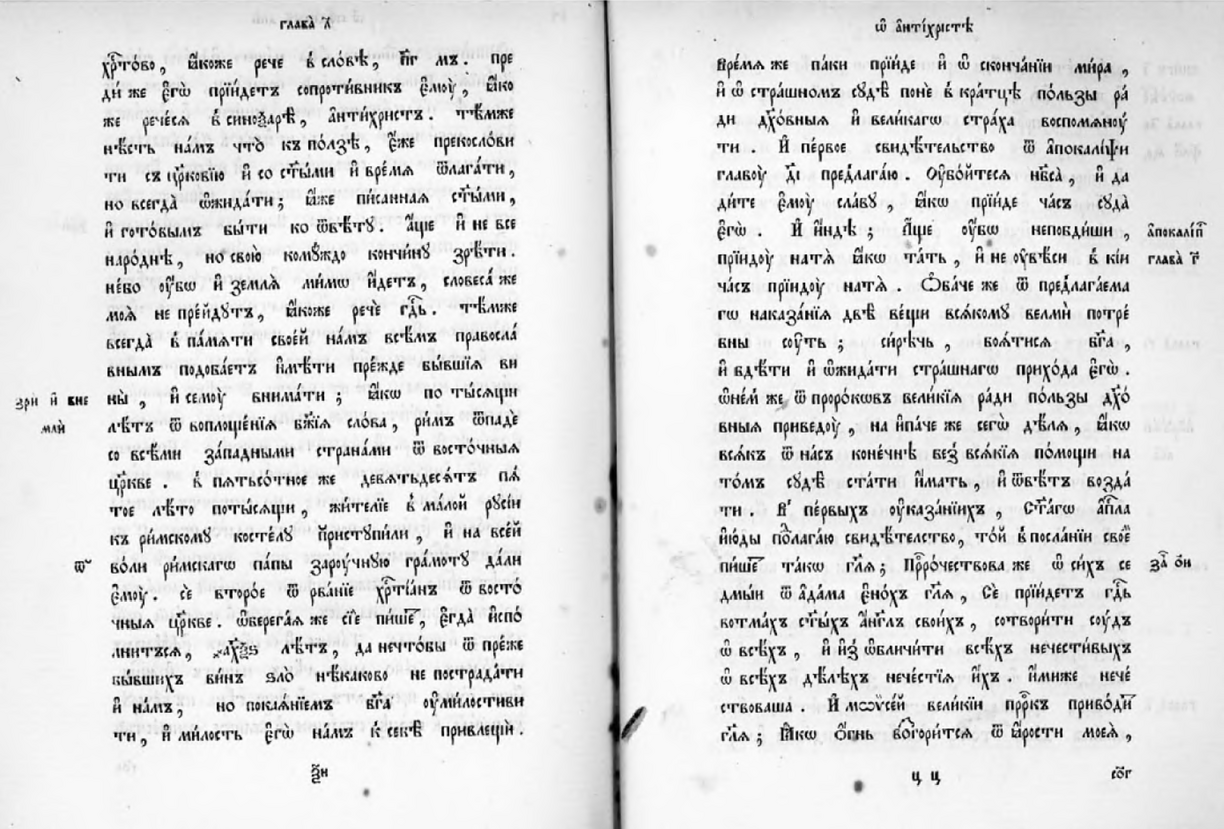 глава̀ л҃
хр҃то́во, ꙗ҆́коже рече в сло́вѣ, п҃г мъ. пре
ди́ же є҆гѡ̀ прїи́детъ сопроти́вникъ є҆моꙋ̀, ꙗ҆́ко
же рече́ся в синоѯа́рѣ, а҆нти́христъ. тѣ́мже
нѣ́сть на́мъ что̀ къ по́лзѣ, є҆́же прекосло́ви
ти съ це́рковїю и҆ со ст҃ы́ми и҆ вре́мѧ ѿлага́ти,
но всегда̀ ѡ҆жида́ти; ꙗ҆́же пи́санная ст҃ы́ми,
и҆ гото́вымъ бы́ти ко ѿвѣ́тꙋ. а҆́ще и҆ не все
наро́днѣ, но свою̀ комꙋ́ждо кончи́нꙋ зрѣ́ти.
не́бо ᲂу҆́бѡ и҆ земля̀ ми́мѡ и҆́детъ, словеса́ же
моѧ̀ не пре́йдꙋтъ, ꙗ҆́коже речѐ гд҃ь. тѣ́мже
всегда̀ в па́мѧти свое́й на́мъ всѣ́мъ правосла́
внымъ подоба́етъ и҆мѣ́ти пре́жде бы́вшїѧ ви
ны̀, и҆ семоꙋ̀ внима́ти; ꙗ҆́кѡ по ты́сѧщи
лѣ́тъ ѿ воплоще́нїѧ бж҃їѧ сло́ва, ри́мъ ѿпадѐ
со всѣ́ми за́падными страна́ми ѿ восто́чныѧ
цр҃кве. в пѧтьсо́тное же девѧтьдесѧ́тъ пѧ́
тое лѣ́то поты́сѧщи, жи́телїе в ма́лой рꙋсі́и
къ ри́мскомꙋ косте́лꙋ пристꙋпи́ли, и҆ на все́й
во́ли ри́мскагѡ па́пы зарꙋ́чнꙋю гра́мотꙋ да́ли
є҆мꙋ̀. сѐ второ́е ѿрва́нїе хр҃тїа́нъ ѿ восто́
чныѧ цр҃кве. ѡ҆берега́ѧ же сїѐ пи́шет, є҆гда̀ и҆спо́
лнитъсѧ, ҂аху҃ѯѕ лѣ́тъ, да не́чтобы ѿ пре́же
бы́вшихъ ви́нъ ѕло̀ нѣ́каково не пострада́ти
и҆ на́мъ, но покаѧ́нїемъ бг҃а ᲂу҆ми́лостиви
ти, и҆ ми́лость є҆гѡ̀ на́мъ к себѣ̀ привлещѝ.
зрѝ и҆ вне
млѝ
ѿ
ѯ҃и
ѡ҆ а҆нті́христѣ
Вре́мѧ же па́ки прїи́де и҆ ѡ҆ сконча́нїи ми́ра,
и҆ ѡ҆ стра́шномъ сꙋдѣ̀ понѐ в кра́тцѣ по́льзы ра́
ди дх҃о́вныѧ и҆ вели́кагѡ стра́ха воспомѧнꙋ́
ти. И҆ пе́рвое свидѣ́тельство ѿ а҆пока́липѱи
главоꙋ̀ д҃і предлага́ю. Оу҆бо́йтесѧ нб҃са̀, и҆ да
ди́те є҆моꙋ̀ сла́вꙋ, ꙗ҆́кѡ прїи́де ча́съ сꙋда̀
є҆гѡ̀. И҆ и҆́ндѣ; А҆́ще оу҆́бѡ непобди́ши,
прїи́доу натѧ̀ ꙗ҆́кѡ та́ть, и҆ не оу҆вѣ́си в кі́и
ча́съ прїи́доу натѧ̀. Ѻ҆ба́че же ѿ предлага́ема
гѡ наказа́нїѧ двѣ̀ ве́щи всѧ́комꙋ велмѝ потре́
бны сꙋ́ть; си́рѣчь, боѧ́тисѧ бг҃а,
и҆ бдѣ́ти и҆ ѡ҆жида́ти стра́шнагѡ прихо́да є҆гѡ̀.
ѡ҆не́м же ѿ проро́кѡвъ вели́кїѧ ради по́льзы дх҃о́
вныѧ приведоꙋ̀, на и҆па́че же сегѡ̀ дѣ́лѧ, ꙗ҆́кѡ
всѧ́къ ѿ на́съ коне́чнѣ без̾ всѧ́кїѧ по́мощи на
то́мъ сꙋдѣ̀ ста́ти и҆́мать, и҆ ѿвѣ́тъ возда́
ти. В пе́рвыхъ оу҆каза́нїихъ, Ст҃а́гѡ а҆пⷭ҇ла
и҆ю́ды по́лага́ю свидѣ́телство, то́й в посла́нїи свое́
пи́шет та́кѡ гл҃ѧ; Прⷪ҇ро́чествова же ѡ҆ си́хъ се
дмы́и ѿ а҆да́ма є҆но́хъ гл҃ѧ, Сѐ прїи́детъ гд҃ь
вотма́хъ ст҃ы́хъ а҆́нгл҃ъ свои́хъ, сотвори́ти сꙋ́дъ
ѡ҆ всѣ́хъ, и҆ и҆з̾ѡбличи́ти всѣ́хъ нечести́выхъ
ѡ҆ всѣ́хъ дѣ́лѣхъ нече́стїѧ и҆́хъ. и҆́миже нече́
ствоваша. И҆ мѡѷсе́й вели́кїи прⷪ҇ро́къ приво́ди
гл҃ѧ; Ꙗ҆́кѡ ѻ҆́гнь возгори́тсѧ ѿ ꙗ҆́рости моеѧ̀,
а҆покали́п
глава̀ г҃
за҃ ѻ҆́н
ц ц
со҃г